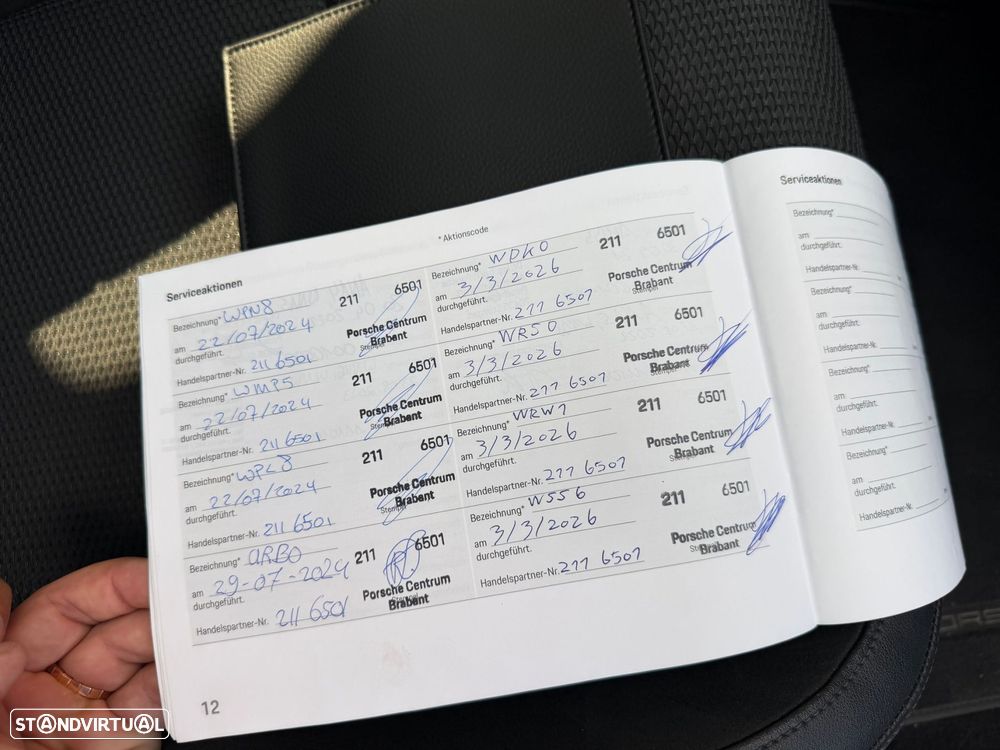 * Aktionscode
Serviceaktionen
Bezeichnung* WPN8
am 22/07/2024
durchgeführt.
Handelspartner-Nr. 211 6501
211 6501
Porsche Centrum
Brabant
Stempel
Bezeichnung* WMP5
am 22/07/2024
durchgeführt.
Handelspartner-Nr. 211 6501
211 6501
Porsche Centrum
Brabant
Stempel
Bezeichnung* WPL8
am 22/07/2024
durchgeführt.
Handelspartner-Nr. 211 6501
211 6501
Porsche Centrum
Brabant
Stempel
Bezeichnung* ARB0
am 29-07-2024
durchgeführt.
Handelspartner-Nr. 211 6501
211 6501
Porsche Centrum
Brabant
Stempel
Bezeichnung* WDK0
am 3/3/2026
durchgeführt.
Handelspartner-Nr. 211 6501
211 6501
Porsche Centrum
Brabant
Stempel
Bezeichnung* WR50
am 3/3/2026
durchgeführt.
Handelspartner-Nr. 211 6501
211 6501
Porsche Centrum
Brabant
Stempel
Bezeichnung* WRW1
am 3/3/2026
durchgeführt.
Handelspartner-Nr. 211 6501
211 6501
Porsche Centrum
Brabant
Stempel
Bezeichnung* WSS6
am 3/3/2026
durchgeführt.
Handelspartner-Nr. 211 6501
211 6501
Porsche Centrum
Brabant
Stempel
12
Serviceaktionen
Bezeichnung*
am
durchgeführt.
Handelspartner-Nr.
Bezeichnung*
am
durchgeführt.
Handelspartner-Nr.
Bezeichnung*
am
durchgeführt.
Handelspartner-Nr.
Bezeichnung*
am
durchgeführt.
Handelspartner-Nr.
STANDVIRTUAL